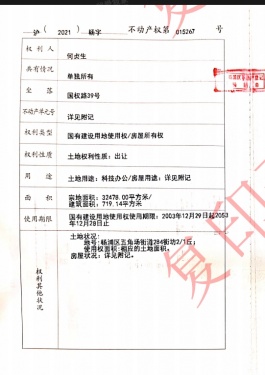 沪( 2021 )杨字 不动产权第 015267 号
权利人 何贞生
共有情况 单独所有
坐落 国权路39号
不动产单元号 详见附记
权利类型 国有建设用地使用权/房屋所有权
权利性质 土地权利性质：出让
用途 土地用途：科技办公/房屋用途：详见附记
面积 宗地面积：32478.00平方米/
建筑面积：719.14平方米
使用期限 国有建设用地使用权使用期限：2003年12月29日起2053
年12月28日止
权利其他状况 土地状况：
地号：杨浦区五角场街道284街坊2/1丘；
使用权面积:相应的土地面积。
房屋状况：详见附记。
复印
复印